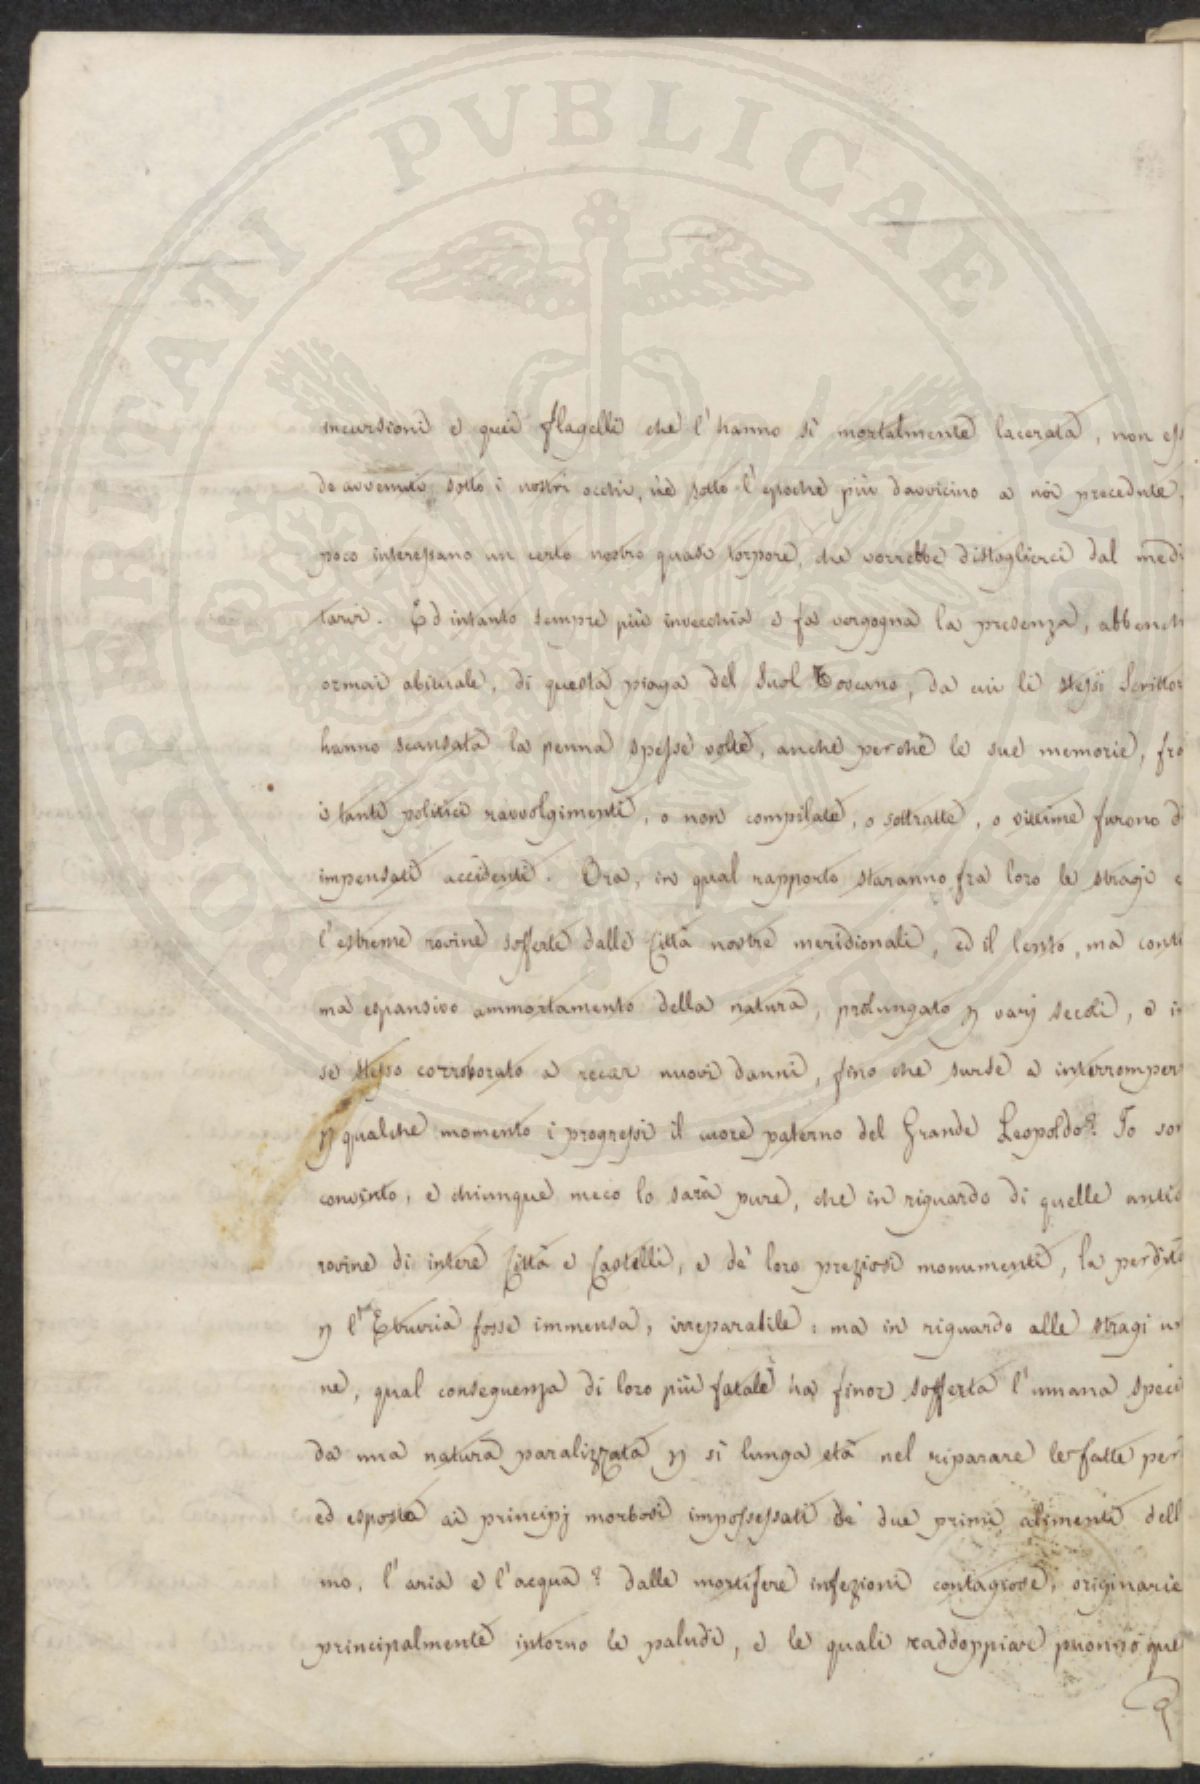 PROSPERITATI PVBLICAE AVGENDAE
incursioni e quei flagelli che l'hanno sì mortalmente lacerata, non ess
do avvenuti sotto i nostri occhi, nè sotto l'epoche più davvicino a noi precedute,
poco interessano un certo nostro quasi torpore, che vorrebbe distoglierci dal medi
tarvi. Ed intanto sempre più invecchia e fa vergogna la presenza, abbench
ormai abituale, di questa piaga del Suol Toscano, da cui li stessi Scrittor
hanno scansata la penna spesse volte, anche perchè le sue memorie, fra
i tanti politici ravvolgimenti, o non compilate, o sottratte, o vittime furono d
impensati accidenti. Ora, in qual rapporto staranno fra loro le stragi e
l'estreme rovine sofferte dalle Città nostre meridionali, ed il lento, ma conti
ma espansivo ammortamento della natura, prolungato p varj secoli, e in
se stesso corroborato a recar nuovi danni, fino che surse a interromper
p qualche momento i progressi il cuore paterno del Grande Leopoldo? Io son
convinto, e chiunque meco lo sarà pure, che in riguardo di quelle antic
rovine di intere Città e Castelli, e de' loro preziosi monumenti, la perdita
p l'Etruria fosse immensa, irreparabile: ma in riguardo alle stragi um
ne, qual conseguenza di loro più fatale ha finor sofferta l'umana speci
da una natura paralizzata p sì lunga età nel riparare le fatte per
ed esposta ai principj morbosi impossessati de' due primi alimenti dell
mo, l'aria e l'acqua? dalle mortifere infezioni contagiose, originarie
principalmente intorno le paludi, e le quali raddoppiare puonno que